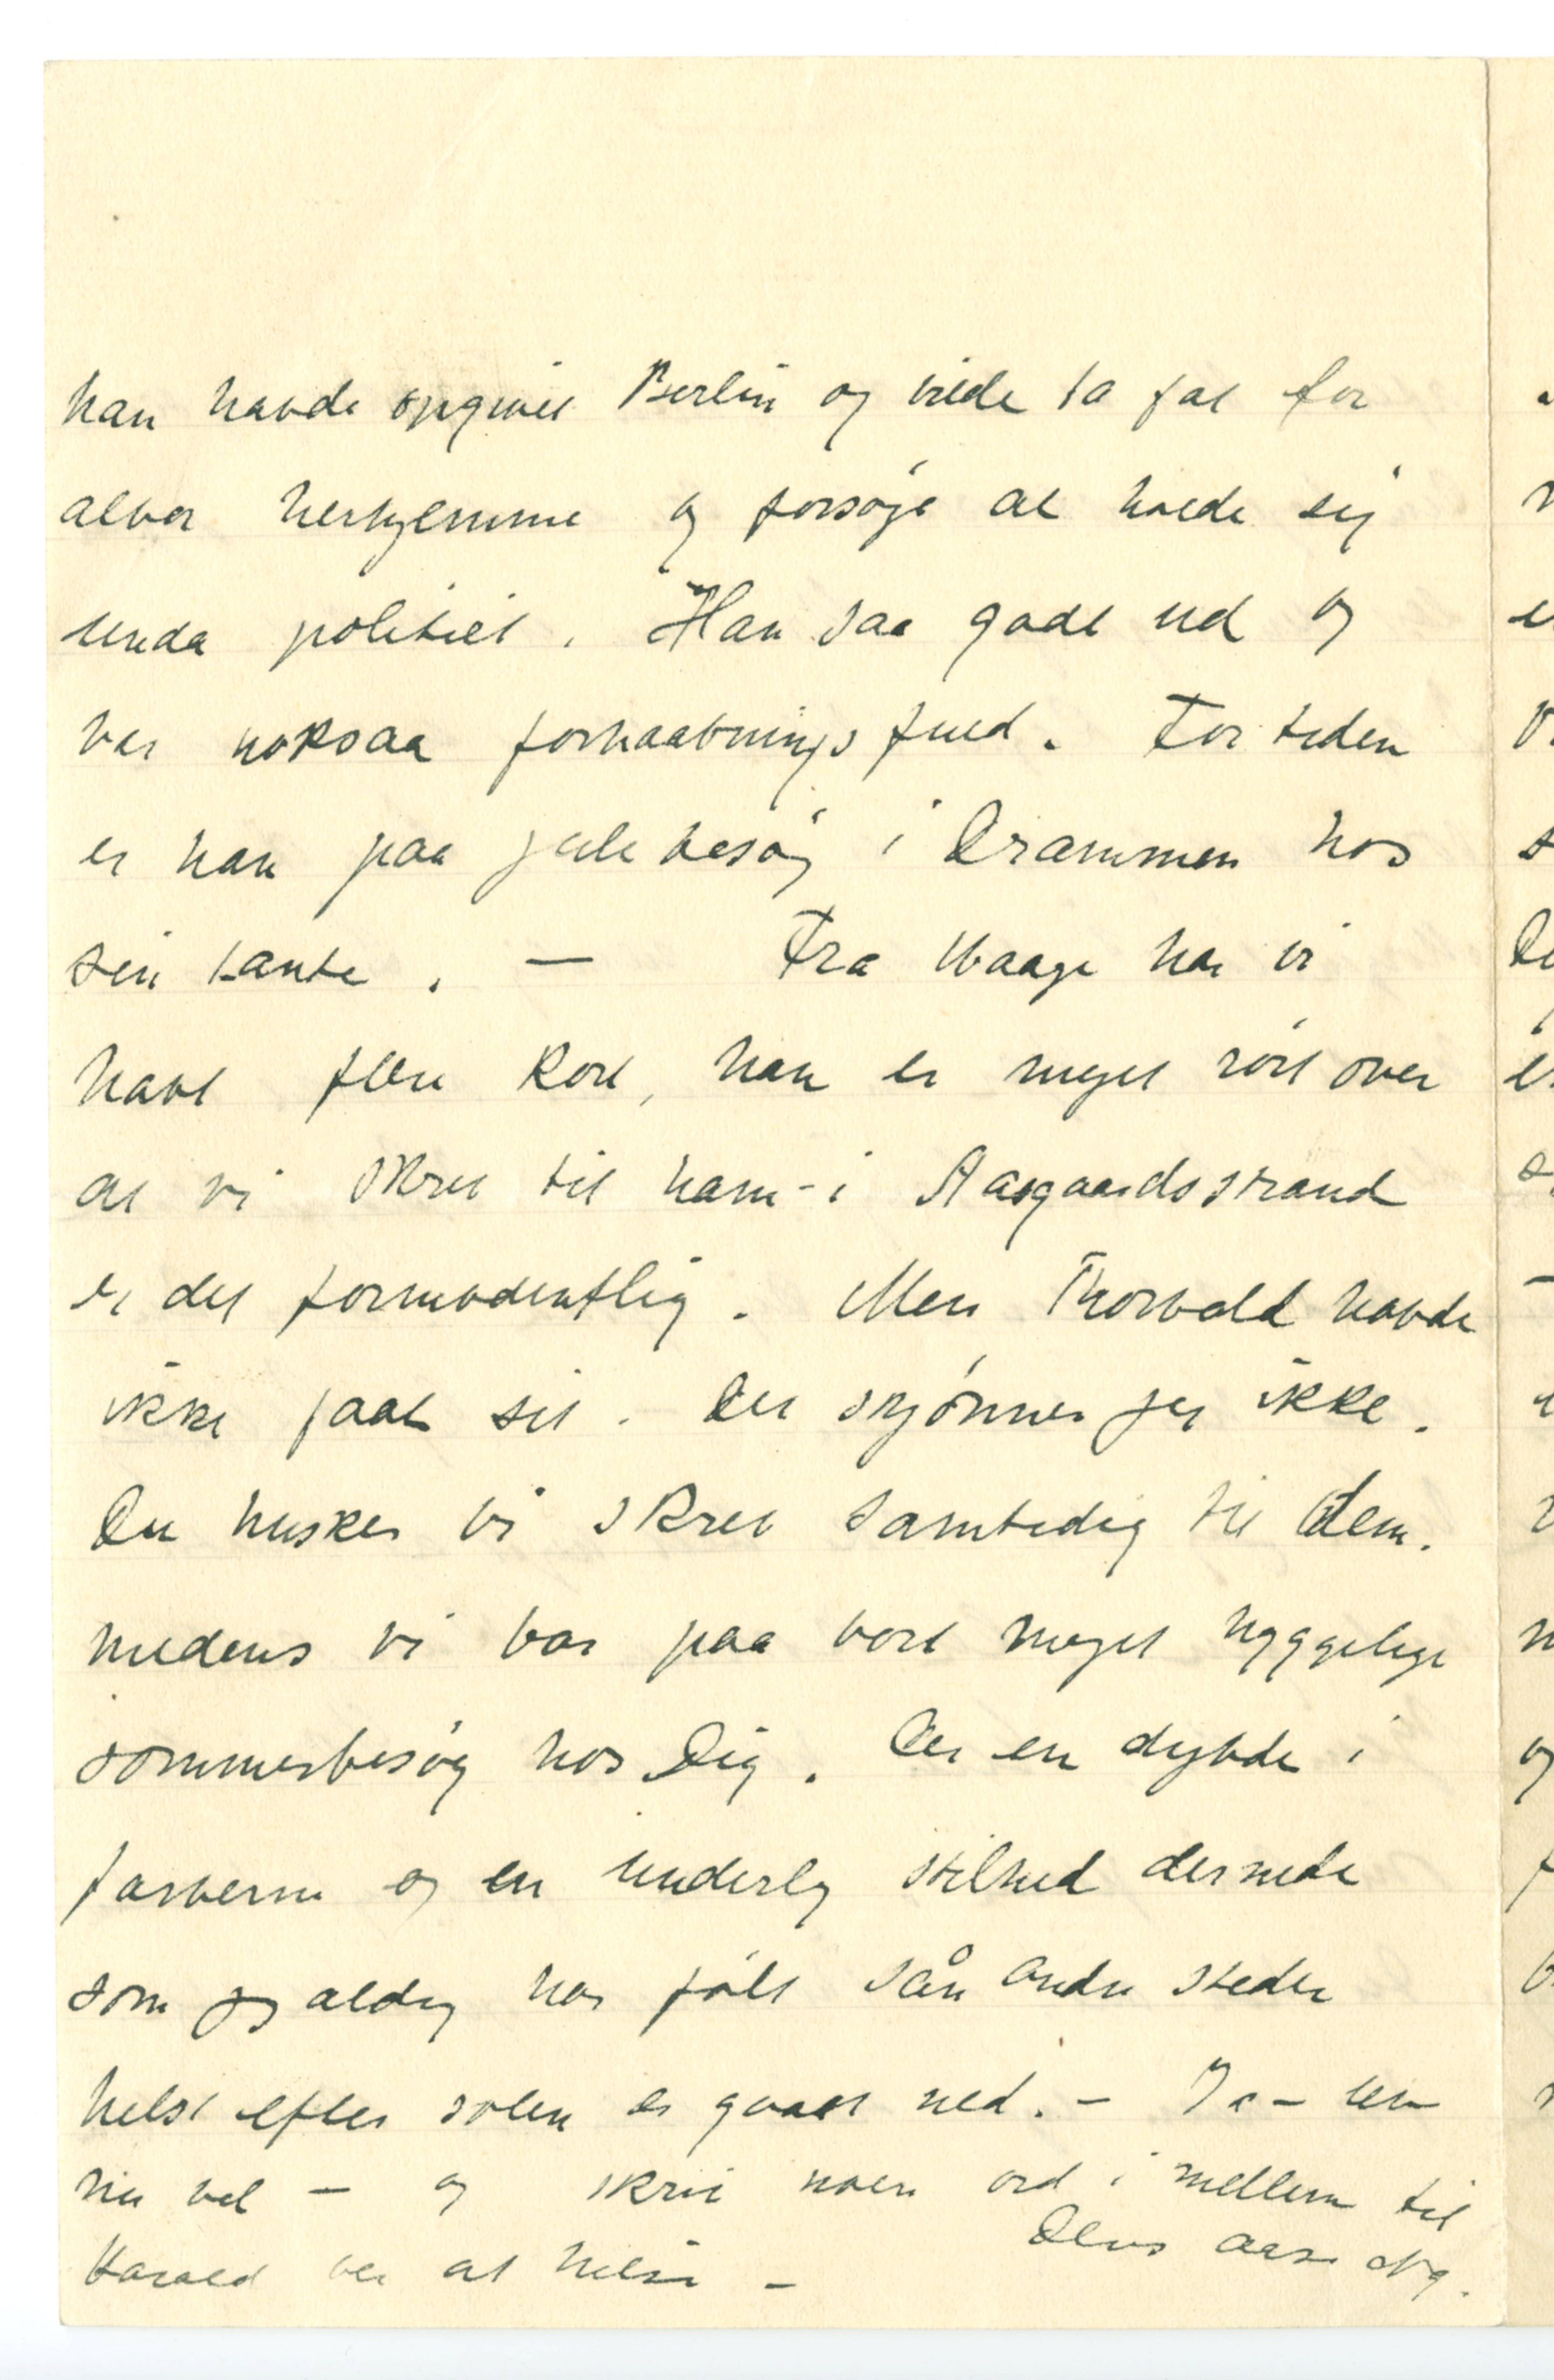 han havde opgivet Berlin og vilde ta fat for
alvor herhjemme og forsøge at holde sig
unda politiet. Han saa godt ud og
var noksaa forhaabningsfuld. For tiden
er han paa julebesøg i Drammen hos
sin tante. — Fra Waage har vi
havt flere kort, han er meget rört over
at vi skrev til ham - i Aasgaardsstrand
er det formodentlig. Men Thorvald havde
ikke faat sit. Det skjönner jeg ikke.
Du husker vi skrev samtidig til dem.
medens vi var paa vort meget hyggelige
sommerbesøg hos Dig. Der en dybde i
farverne og en underlig stilhed dernede
som jeg aldrig har følt sån andre steder
helst efter solen er gaaet ned. - Ja - lev
nu vel - og skriv noen ord i mellem til
Deres Aase Ng.
Harald ber at hilse -